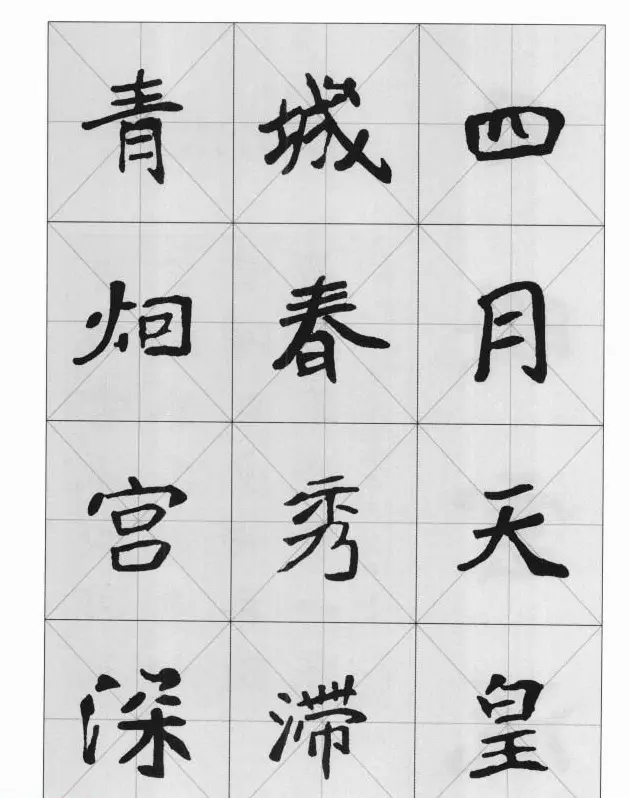 四月天皇
城春秀滞
青宫深